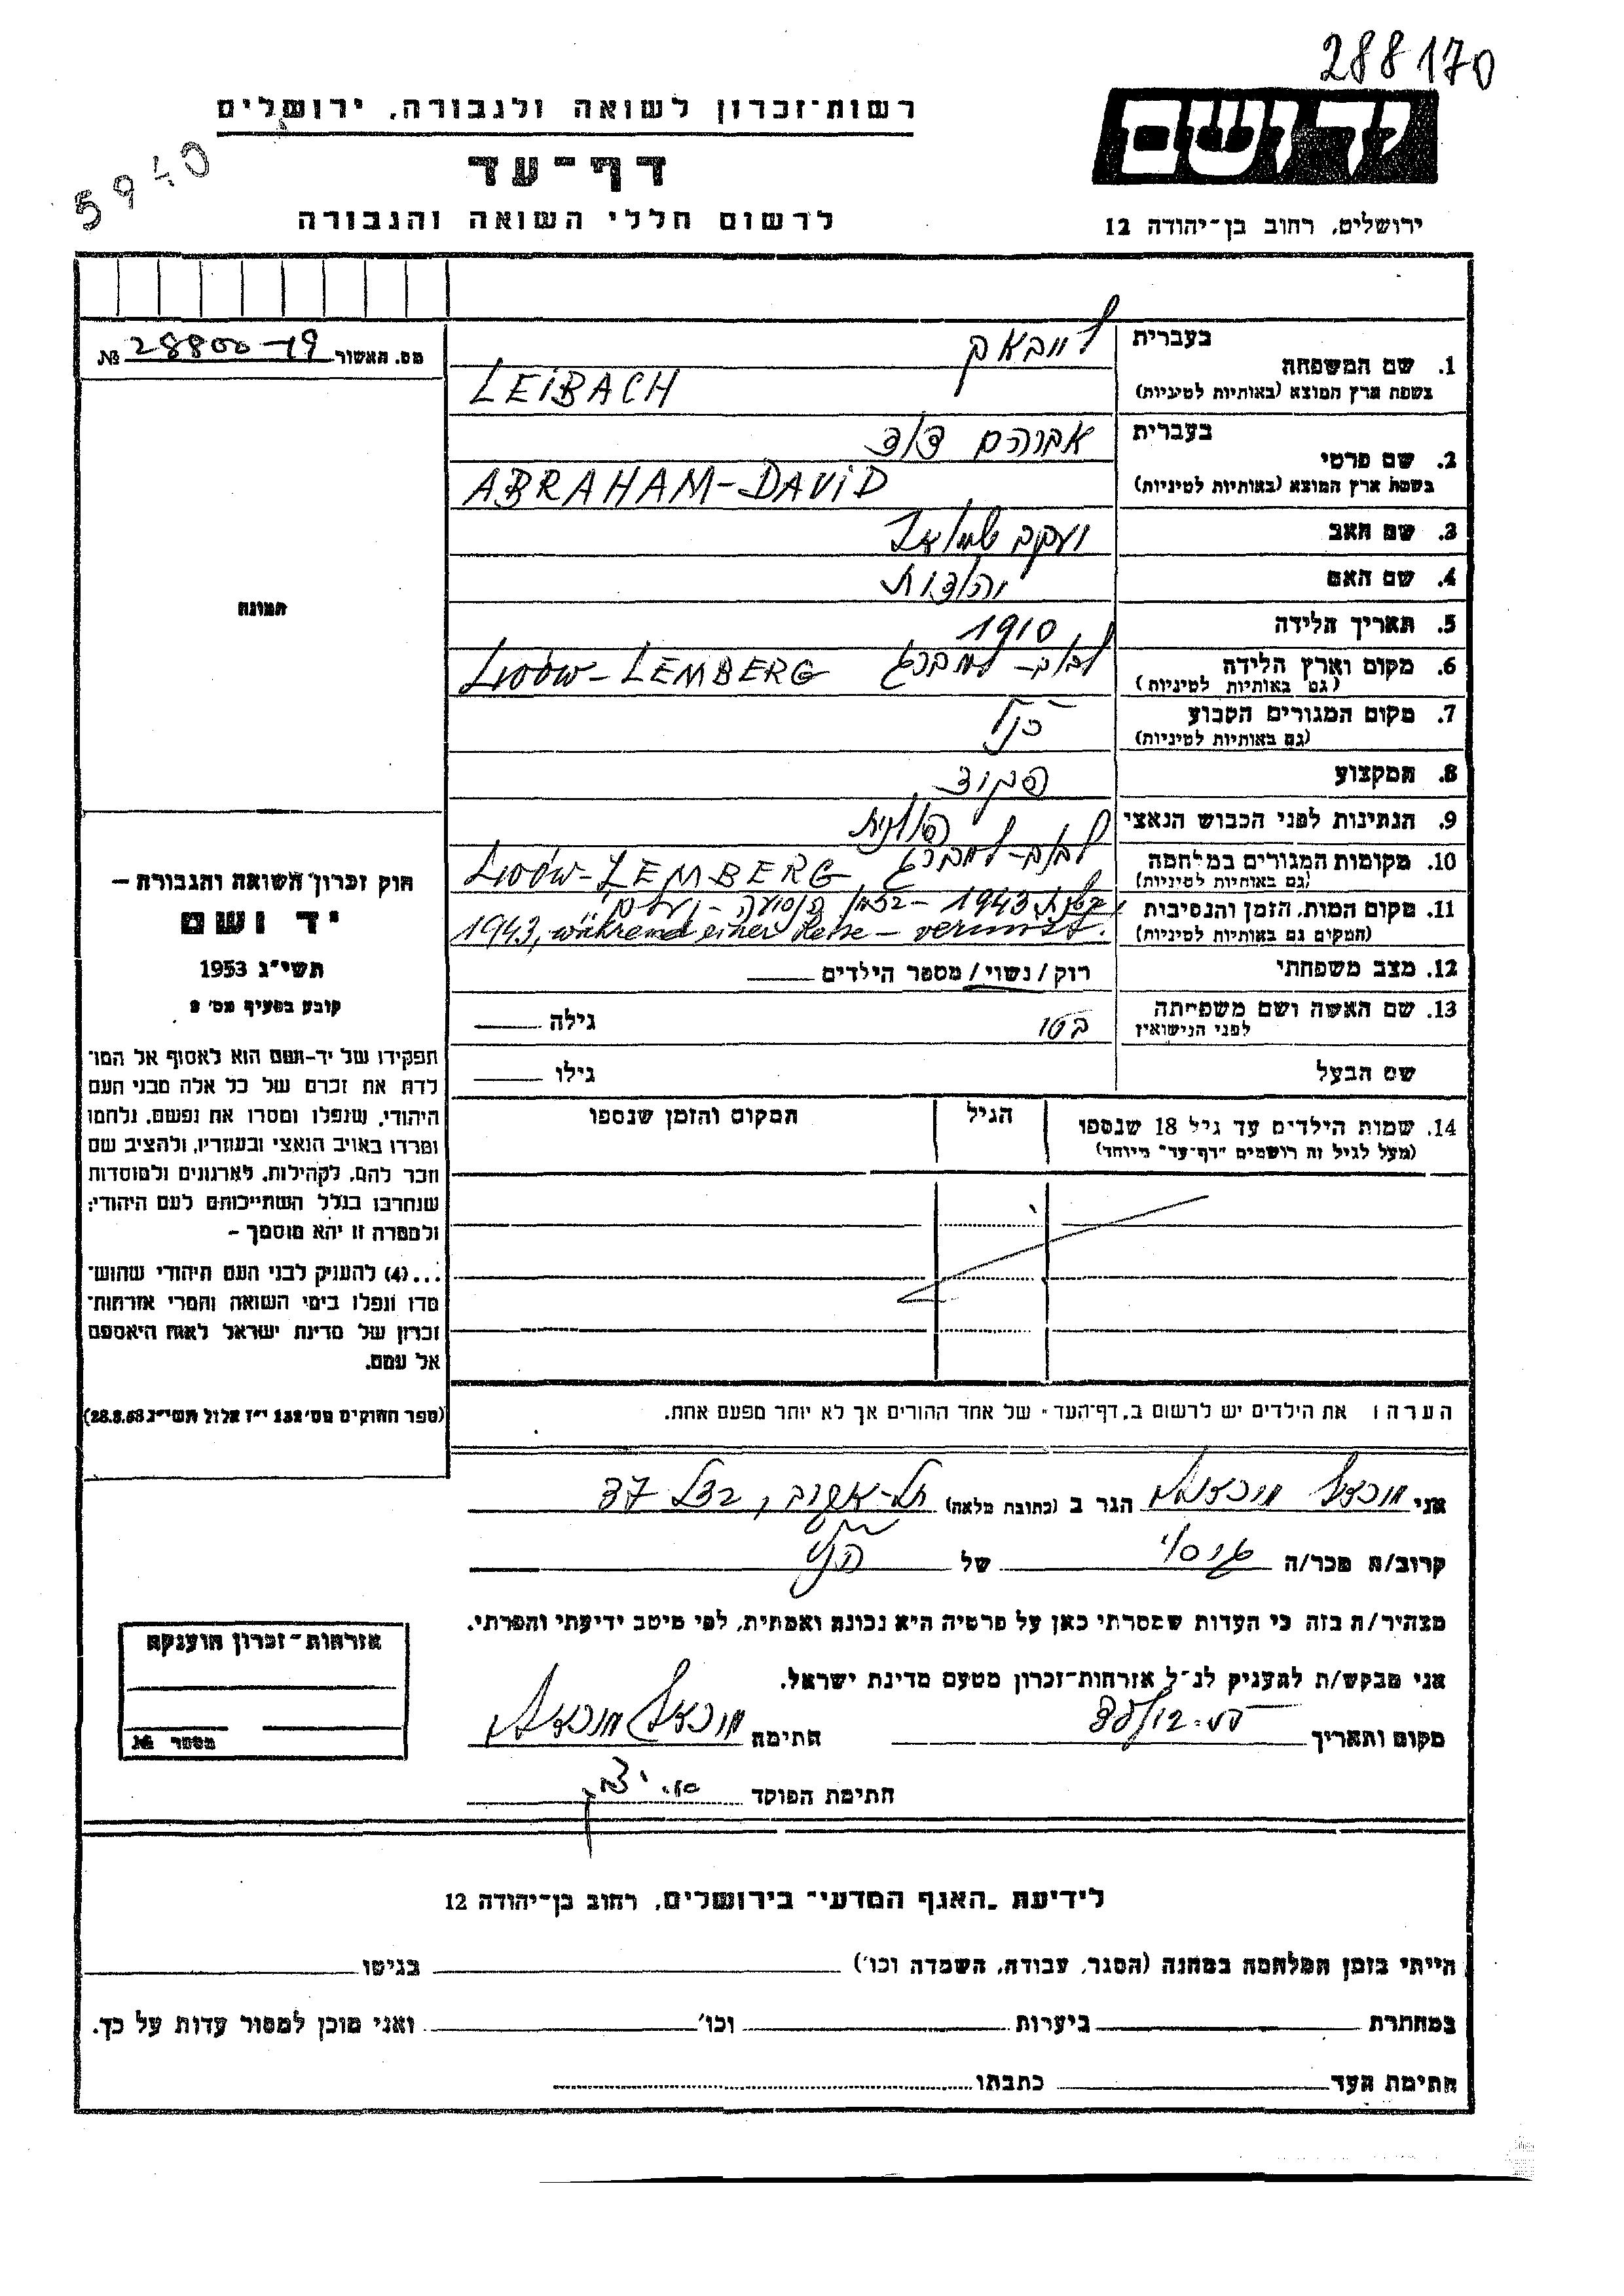 288170
רשות־זכרון לשואה ולגבורה, ירושלים
יד ושם
5940
דף־עד
לרשום חללי השואה והגבורה
ירושלים, רחוב בן־יהודה 12
מס. האשור 28800-19 №
תמונה
חוק זכרון השואה והגבורה –
יד ושם
תשי״ג 1953
קובע בסעיף מס׳ 2
תפקידו של יד-ושם הוא לאסוף אל המו־
לדת את זכרם של כל אלה מבני העם
היהודי, שנפלו ומסרו את נפשם, נלחמו
ומרדו באויב הנאצי ובעוזריו, ולהציב שם
וזכר להם, לקהילות, לארגונים ולמוסדות
שנחרבו בגלל השתייכותם לעם היהודי;
ולמטרה זו יהא מוסמך –
...(4) להעניק לבני העם היהודי שהוש־
מדו ונפלו בימי השואה והמרי אזרחות־
זכרון של מדינת ישראל לאות היאספם
אל עמם.
(ספר החוקים מס׳ 132 י״ז אלול תשי״ג 28.8.53)
בעברית לייבאך
1. שם המשפחה
בשפת ארץ המוצא (באותיות לטיניות) LEIBACH
בעברית אברהם דוד
2. שם פרטי
בשפת ארץ המוצא (באותיות לטיניות) ABRAHAM-DAVID
3. שם האב יעקב שמואל
4. שם האם יהודית
5. תאריך הלידה 1910
6. מקום וארץ הלידה לבוב-למברג LWÓW-LEMBERG
(גם באותיות לטיניות)
7. מקום המגורים הקבוע כנ״ל
(גם באותיות לטיניות)
8. המקצוע פקיד
9. הנתינות לפני הכבוש הנאצי פולנית
10. מקומות המגורים במלחמה לבוב-למברג LWÓW-LEMBERG
(גם באותיות לטיניות)
11. מקום המות, הזמן והנסיבות בשנת 1943 - בזמן נסיעה - נעלם
(המקום גם באותיות לטיניות) 1943, während einer Reise - vermisst.
12. מצב משפחתי רווק/נשוי/ מספר הילדים
13. שם האשה ושם משפחתה
לפני הנישואין בטי גילה
שם הבעל גילו
14. שמות הילדים עד גיל 18 שנספו הגיל המקום והזמן שנספו
(מעל לגיל זה רושמים ״דף-עד״ מיוחד)
הערה: את הילדים יש לרשום ב״דף־העד״ של אחד ההורים אך לא יותר מפעם אחת.
אני הגר ב (כתובת מלאה) תל-אביב, 37
קרוב/ה מכר/ה גיסו של הנ״ל
מצהיר/ה בזה כי העדות שמסרתי כאן על פרטיה היא נכונה ואמתית, לפי מיטב ידיעתי והכרתי.
אני מבקש/ת להעניק לנ״ל אזרחות־זכרון מטעם מדינת ישראל.
מקום ותאריך חתימה
חתימת הפוקד
אזרחות־זכרון הוענקה
מספר №
לידיעת ״האגף המדעי״ בירושלים, רחוב בן־יהודה 12
הייתי בזמן המלחמה במחנה (הסגר, עבודה, השמדה וכו׳) בגיטו
במחתרת ביערות וכו׳ ואני מוכן למסור עדות על כך.
חתימת העד כתבתו